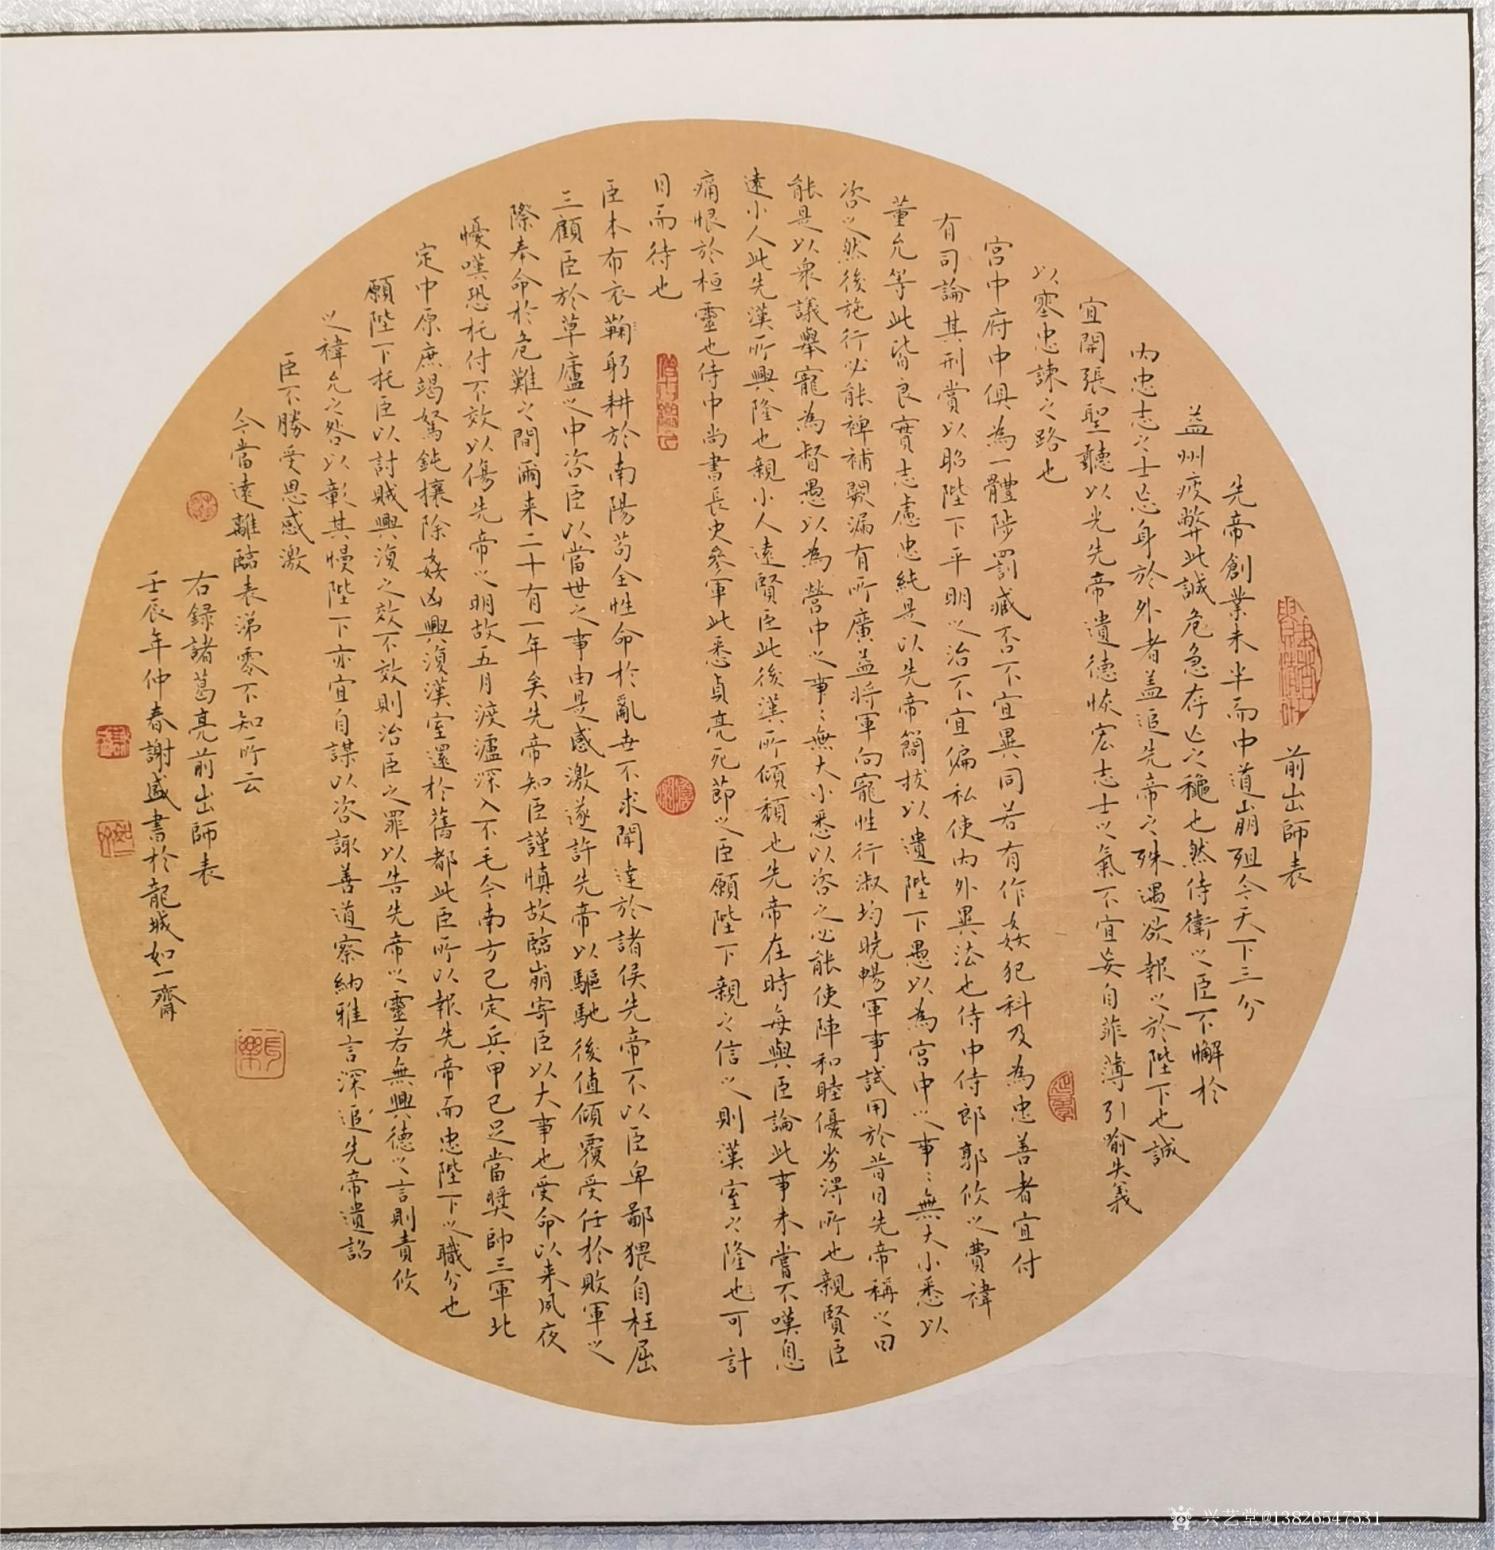 前出師表
先帝創業未半而中道崩殂今天下三分
益州疲弊此誠危急存亡之穐也然侍衛之臣不懈於
內忠志之士忘身於外者盖追先帝之殊遇欲報之於陛下也誠
宜開張聖聽以光先帝遺德恢宏志士之氣不宜妄自菲薄引喻失義
以塞忠諫之路也
宮中府中俱為一體陟罰臧否不宜異同若有作姦犯科及為忠善者宜付
有司論其刑賞以昭陛下平明之治不宜偏私使內外異法也侍中侍郎郭攸之費禕
董允等此皆良實志慮忠純是以先帝簡拔以遺陛下愚以為宮中之事〻無大小悉以
咨之然後施行必能裨補闕漏有所廣益將軍向寵性行淑均曉暢軍事試用於昔日先帝稱之曰
能是以衆議舉寵為督愚以為營中之事〻無大小悉以咨之必能使陣和睦優劣得所也親賢臣
遠小人此先漢所興隆也親小人遠賢臣此後漢所傾頹也先帝在時每與臣論此事未嘗不嘆息
痛恨於桓靈也侍中尚書長史參軍此悉貞亮死節之臣願陛下親之信之則漢室之隆也可計
日而待也
臣本布衣躬耕於南陽苟全性命於亂世不求聞達於諸侯先帝不以臣卑鄙猥自枉屈
三顧臣於草廬之中咨臣以當世之事由是感激遂許先帝以驅馳後值傾覆受任於敗軍之
際奉命於危難之間爾来二十有一年矣先帝知臣謹慎故臨崩寄臣以大事也受命以来夙夜
憂嘆恐托付不效以傷先帝之明故五月渡瀘深入不毛今南方已定兵甲已足當奬帥三軍北
定中原庶竭駑鈍攘除姦凶興復漢室還於舊都此臣所以報先帝而忠陛下之職分也
願陛下托臣以討賊興復之效不效則治臣之罪以告先帝之靈若無興德之言則責攸
之禕允之咎以彰其慢陛下亦宜自謀以咨諏善道察納雅言深追先帝遺詔
臣不勝受恩感激
今當遠離臨表涕零不知所云
右録諸葛亮前出師表
壬辰年仲春謝盛書於龍城如一齋
兴艺堂@13826547531